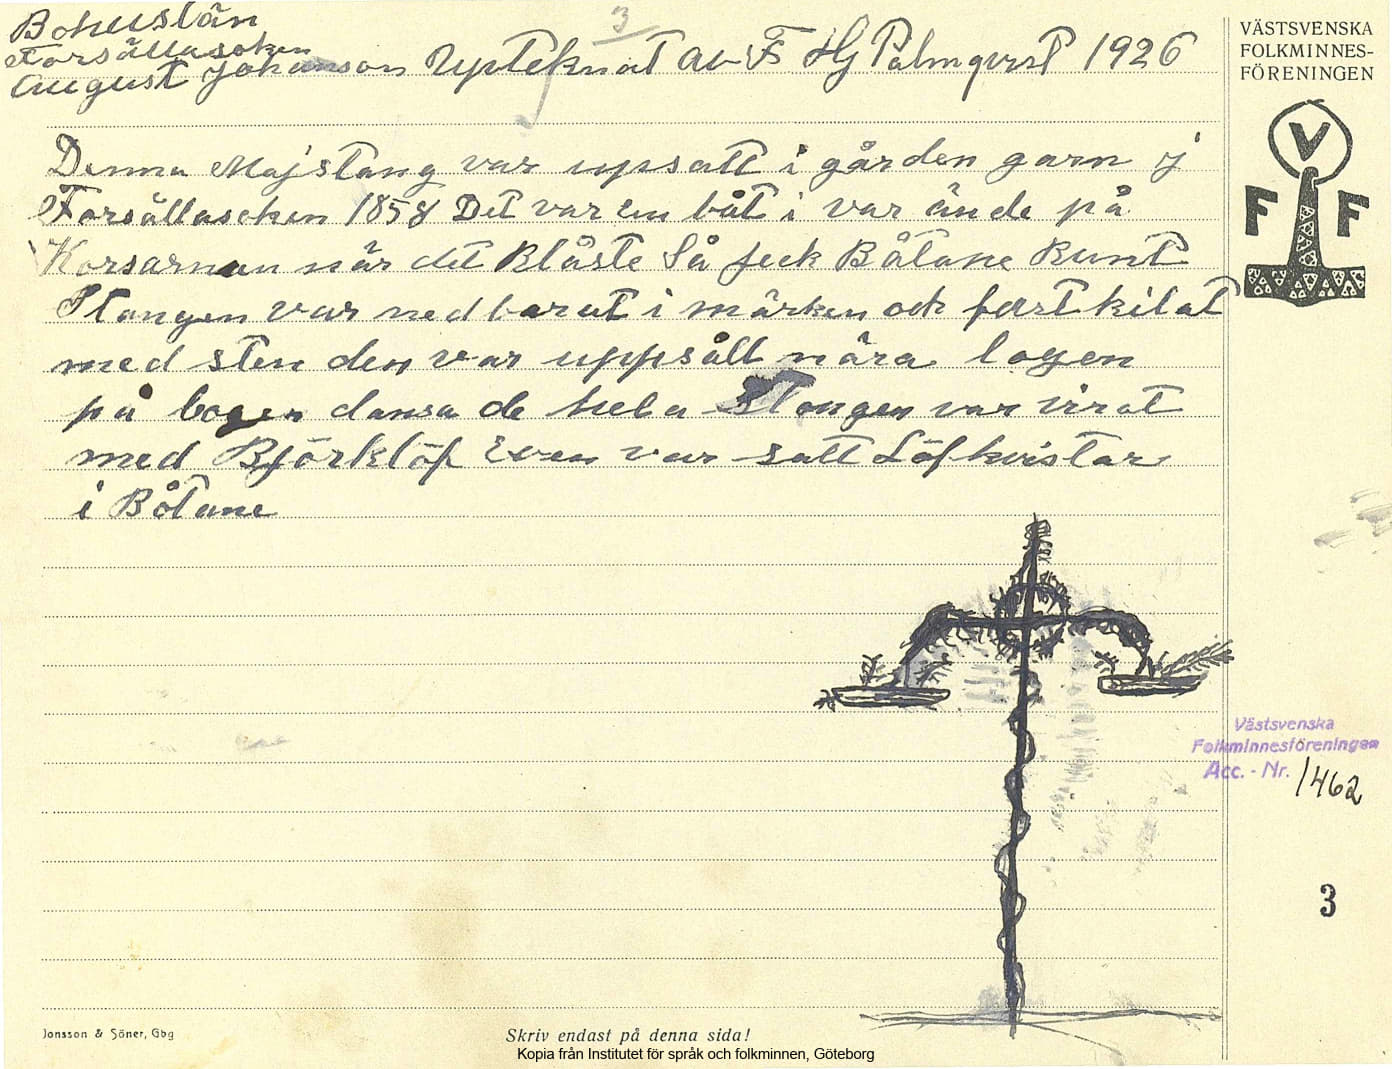 3
Bohuslän
Forsällasoken
August Johanson Upteknat av F Hj Palmqvist 1926
Denna Majstang var upsatt i gården garn j
Forsällasoken 1858 Det var en båt i var ände på
Korsarman när det Blåste Så feck Båtane Runt
Stangen var nedbarat i märken och fastkilat
med sten den var uppsält nära logen
på logen dansa de hela Stongen var virat
med Björklöf Even var satt Löfkvistar
i Båtane
VÄSTSVENSKA
FOLKMINNES-
FÖRENINGEN
V
F F
Västsvenska
Folkminnesföreningen
Acc. - Nr. 1462
3
Jonsson & Söner, Gbg
Skriv endast på denna sida!
Kopia från Institutet för språk och folkminnen, Göteborg